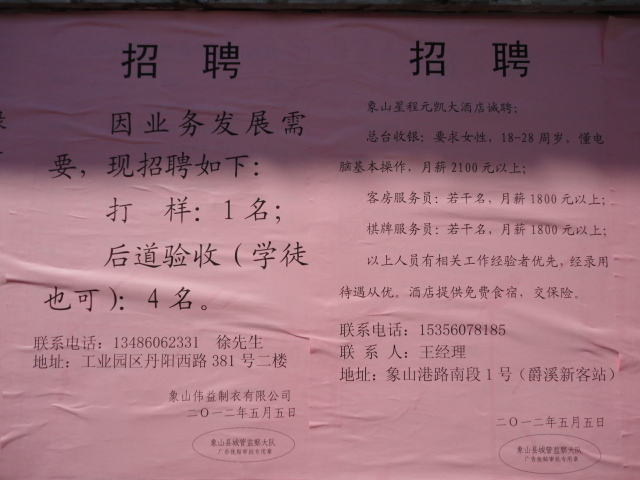 招 聘
因业务发展需
要，现招聘如下：
打 样：1名；
后道验收（学徒
也可）：4名。
联系电话：13486062331 徐先生
地址：工业园区丹阳西路381号二楼
象山伟益制衣有限公司
二〇一二年五月五日
象山县城管监察大队
广告张贴审批专用章
招 聘
象山星程元凯大酒店诚聘；
总台收银：要求女性，18-28周岁，懂电
脑基本操作，月薪2100元以上；
客房服务员：若干名，月薪1800元以上；
棋牌服务员：若干名，月薪1800元以上；
以上人员有相关工作经验者优先，经录用
待遇从优。酒店提供免费食宿，交保险。
联系电话：15356078185
联 系 人：王经理
地址：象山港路南段1号（爵溪新客站）
二〇一二年五月五日
象山县城管监察大队
广告张贴审批专用章